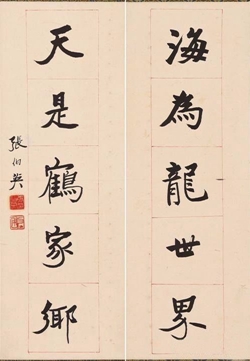 海為龍世界
天是鶴家鄉
張伯英